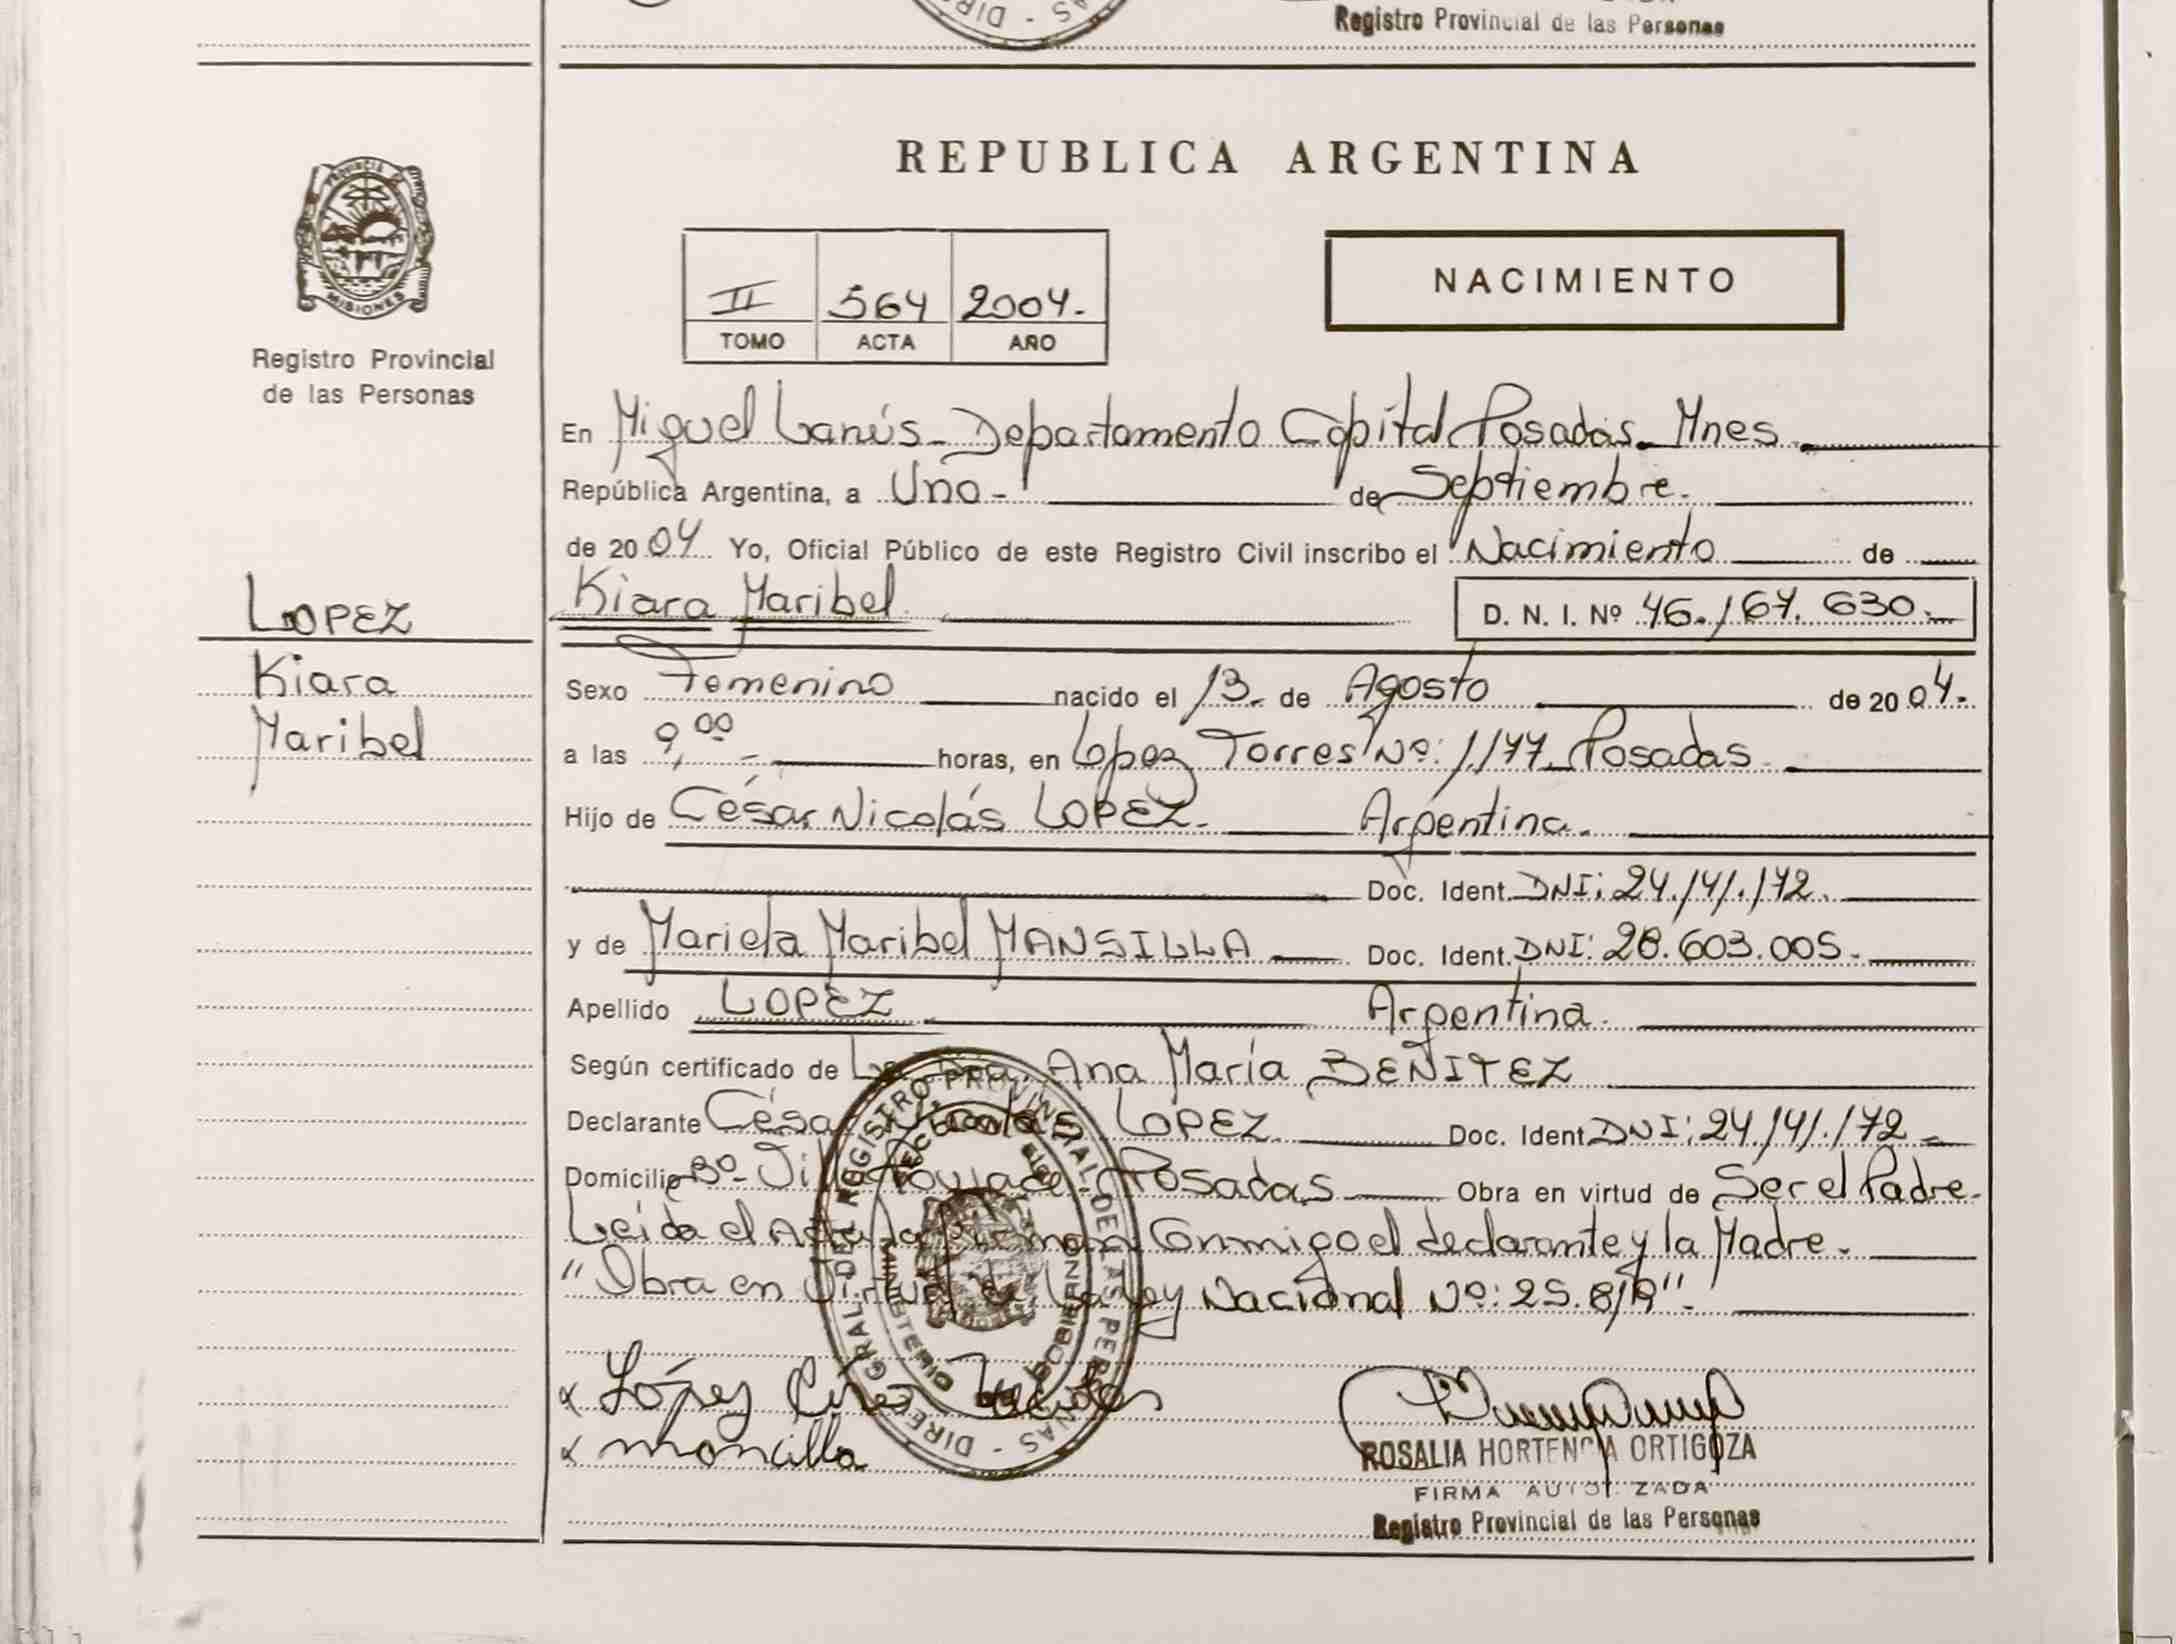 Registro Provincial de las Personas
REPUBLICA ARGENTINA
II 564 2004.
TOMO ACTA AÑO
NACIMIENTO
PROVINCIA DE
MISIONES
Registro Provincial
de las Personas
LOPEZ
Kiara
Maribel
En Miguel Lanús - Departamento Capital Posadas. Mnes.
República Argentina, a Uno - de Septiembre.
de 2004 Yo, Oficial Público de este Registro Civil inscribo el Nacimiento de
Kiara Maribel. D. N. I. Nº 46.167.630.-
Sexo Femenino nacido el 13. de Agosto de 2004.
a las 9,00 horas, en Lopez Torres Nº: 1.177. Posadas.
Hijo de César Nicolás LOPEZ. Argentina.
Doc. Ident. DNI: 24.141.172.
y de Mariela Maribel MANSILLA Doc. Ident. DNI: 28.603.005.
Apellido LOPEZ Argentina.
Según certificado de La Dra. Ana María BENITEZ
Declarante César Nicolás LOPEZ Doc. Ident. DNI: 24.141.172.-
Domicilio Bº- Posadas Obra en virtud de Ser el Padre.
Leída el Acta la firman Conmigo el declarante y la Madre.
"Obra en Virtud de La Ley Nacional Nº: 25.819".
DIREC. GRAL. DEL REGISTRO PROVINCIAL DE LAS PERSONAS
MINISTERIO DE GOBIERNO
x López
x mancilla
ROSALIA HORTENCIA ORTIGOZA
FIRMA AUTORIZADA
Registro Provincial de las Personas